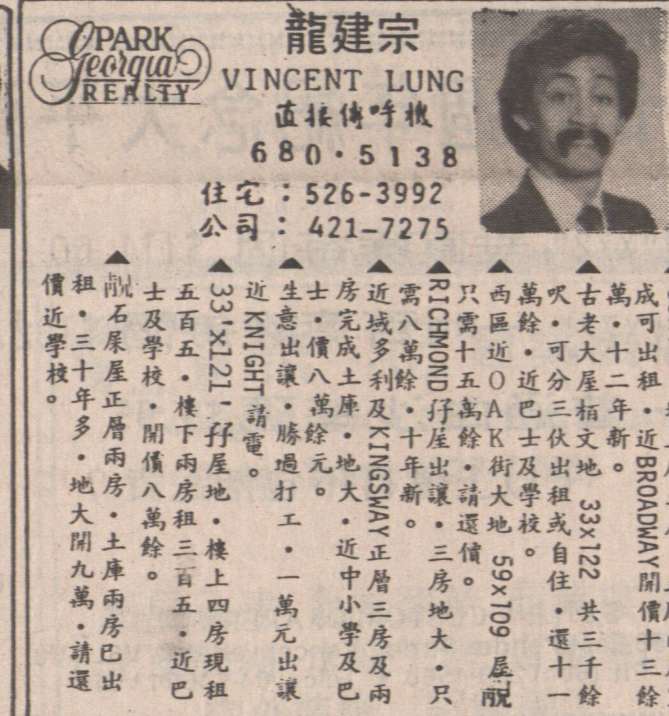 PARK
Georgia
REALTY
龍建宗
VINCENT LUNG
直接傳呼機
680・5138
住宅：526-3992
公司：421-7275
成可出租・近BROADWAY開價十三餘
萬・十二年新。
▲古老大屋栢文地 33x122 共三千餘
呎・可分三伏出租或自住・還十一
萬餘・近巴士及學校。
▲西區近OAK街大地 59x109 屋靚
只需十五萬餘・請還價。
▲RICHMOND孖屋出讓・三房地大・只
需八萬餘・十年新。
▲近域多利及KINGSWAY正層三房及兩
房完成土庫・地大・近中小學及巴
士・價八萬餘元。
▲生意出讓・勝過打工・一萬元出讓
近KNIGHT請電。
▲33'x121'孖屋地・樓上四房現租
五百五・樓下兩房租三百五・近巴
士及學校・開價八萬餘。
▲靚石屎屋正層兩房・土庫兩房已出
租・三十年多・地大開九萬・請還
價近學校。